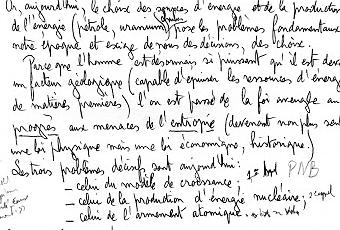 Or, aujourd'hui, le choix des sources d'énergie et de la production
de l'énergie (pétrole, uranium) pose les problèmes fondamentaux
notre époque et exige de nous des décisions, des choix.
Parce que l'homme est désormais si puissant qu'il est deve
un facteur géologique (capable d'épuiser les ressources d'énerg
de matières premières) l'on est passé de la foi aveugle au
progrès aux menaces de l'entropie (devenant non plus seul
une loi physique mais une loi économique, historique.)
Les trois problèmes décisifs sont aujourd'hui:
– celui du modèle de croissance; PNB
– celui de la production d'énergie nucléaire;
– celui de l'armement atomique.